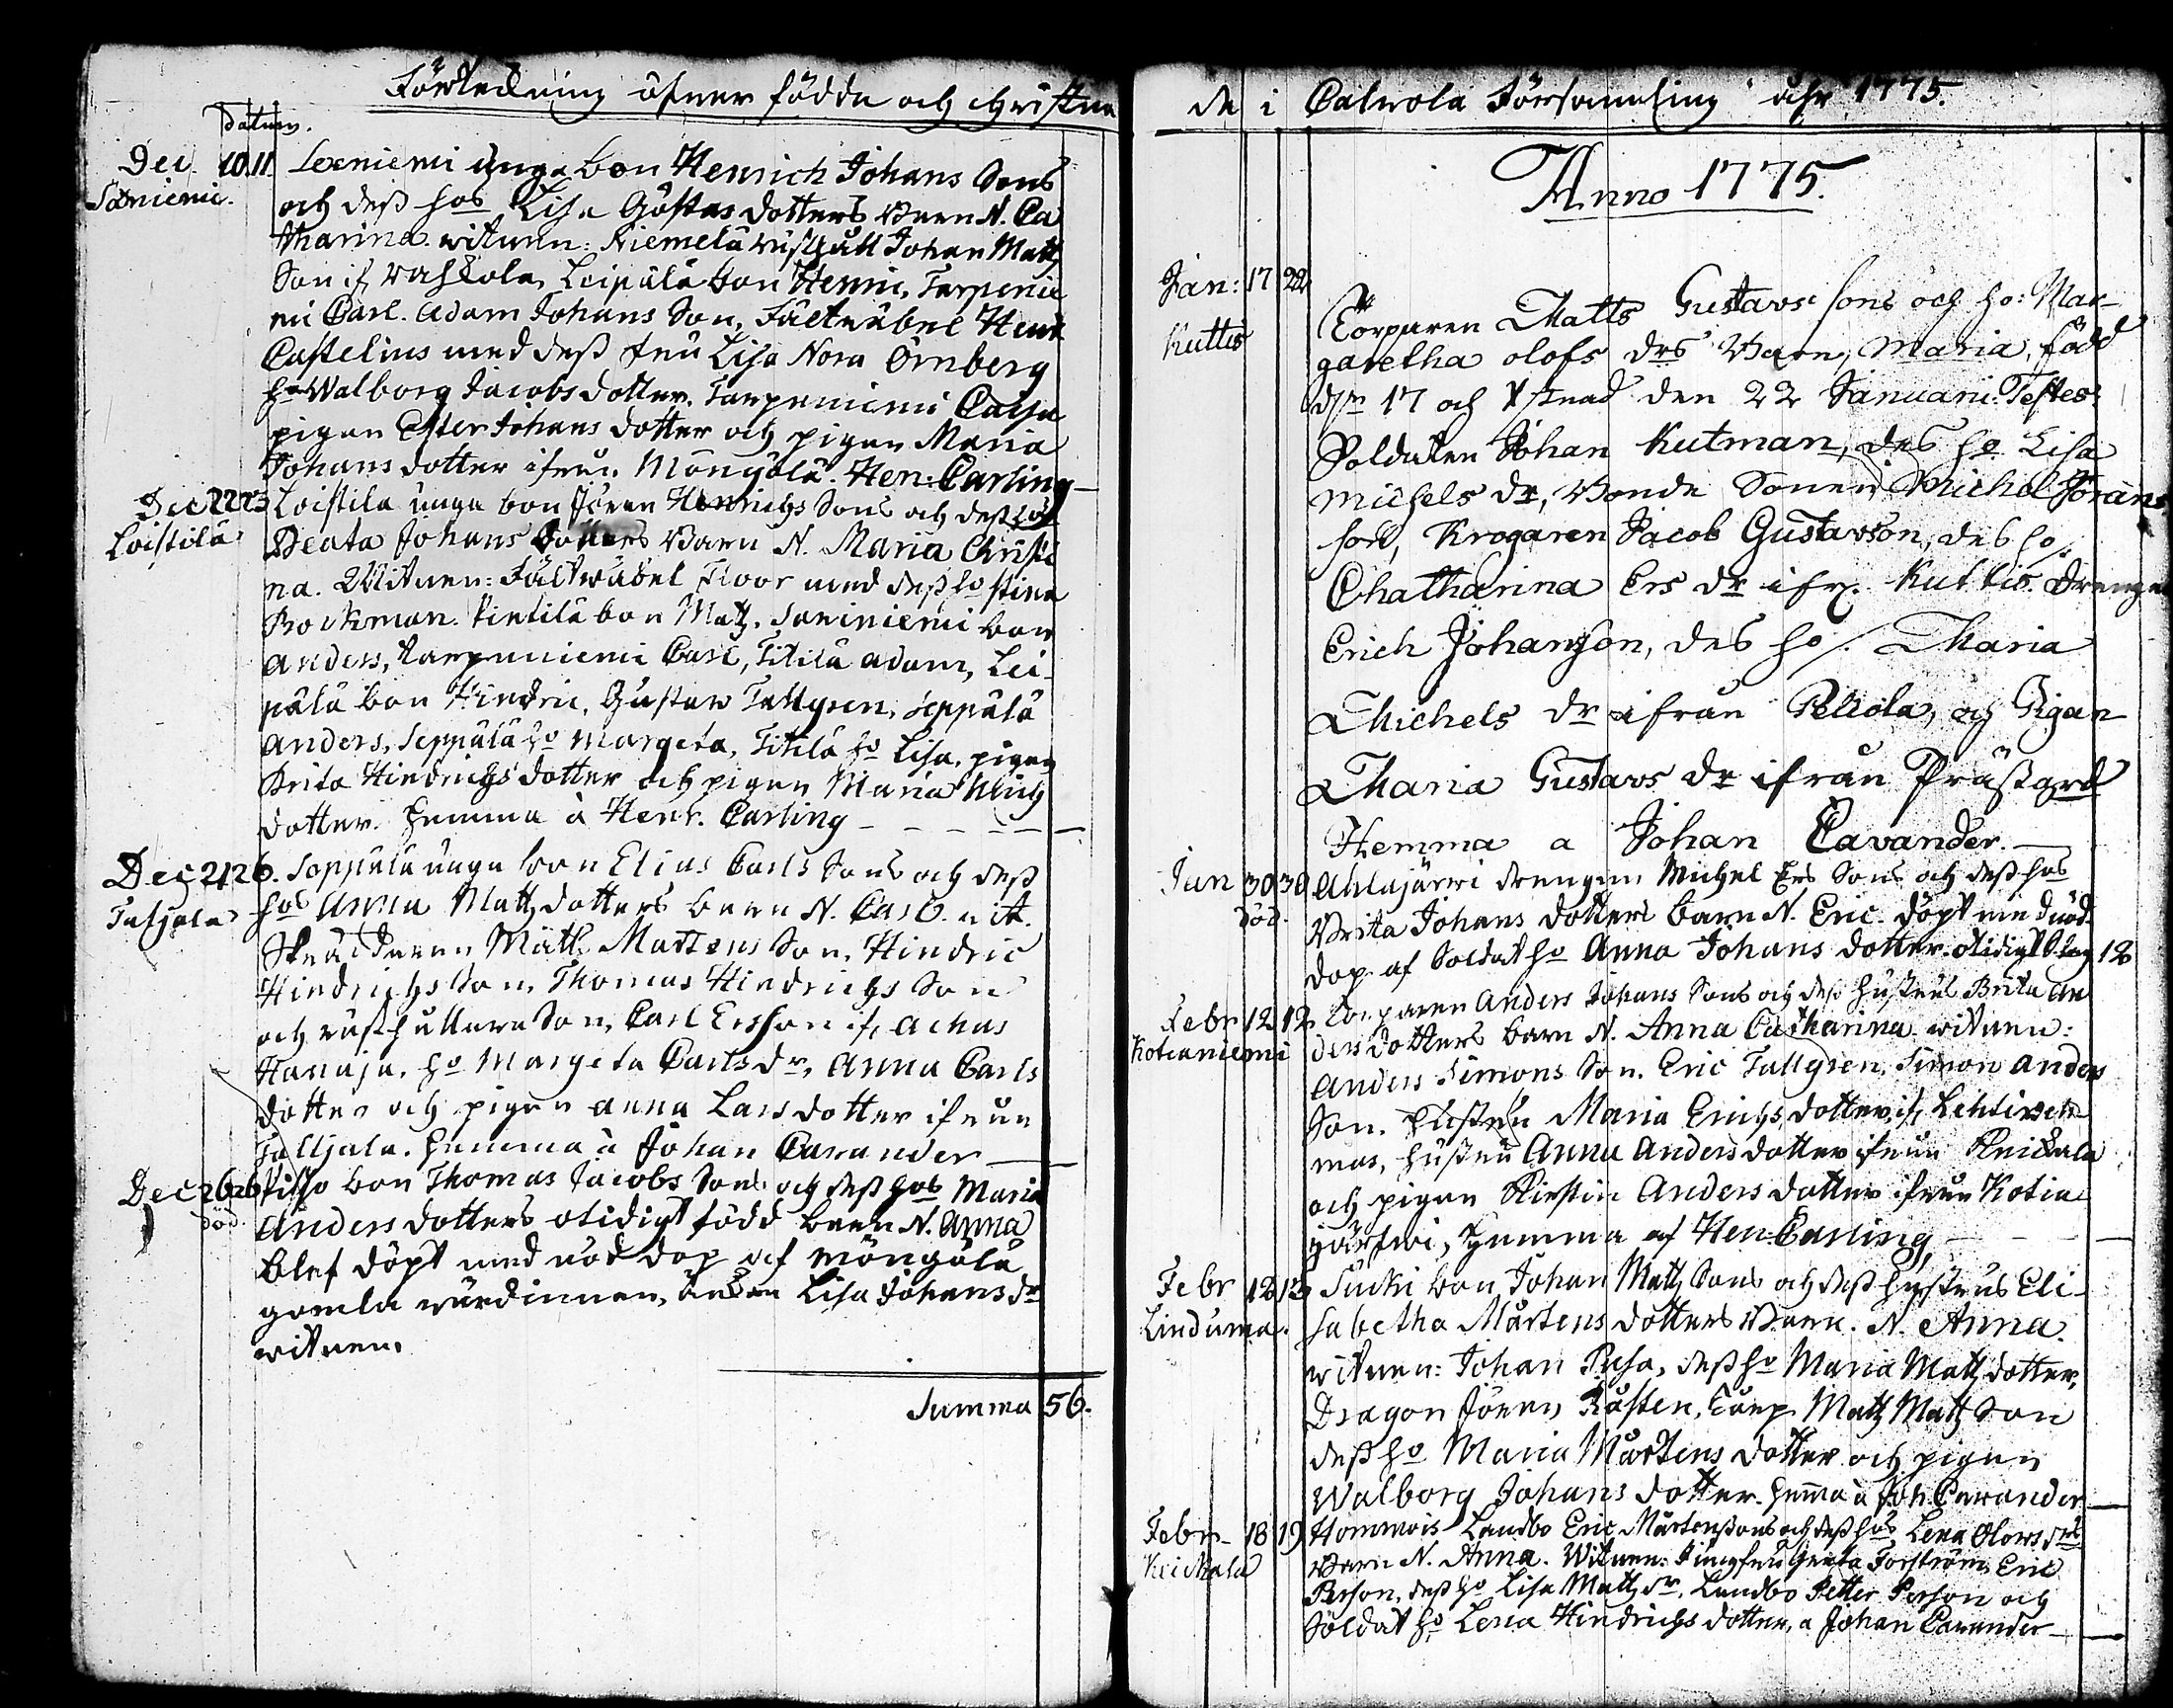 Förtekning öfver födda och Christna
datum.
Dec. 10 11. Lexniemi unga bon Henrich Johans Sons
Sexniemi. och deß hos Lisa Göstas dotters Barn N. Ca
tharina. witnen: Niemelä rusthåll Johan Matz
Son if. Leipälä bon Henric, Tarpenie
mi Carl. Adam Johans Son, Fältwäbel Henr
Castelius med deß fru Lisa Nora Örnberg
ho Walborg Jacobs dotter. Tarpeniemi Caisa
pigan Ester Johans dotter och pigan Maria
Johans dotter ifrån Möngölä. Hen: Carling
Dec 22 23 Loistila unga bon Jören Henrichs Sons och deß hos
Loistila Beata Johans dotters Barn N. Maria Christi
na. Witnen: Fältwäbel Floor med deß ho Stina
Bockman. Pintilä bon Matz. Joniniemi bon
Anders, Tarpeniemi Carl, Titilä Adam, Lei-
pälä bon Hindric, Gustaw Tallgren, Seppälä
Anders, Seppälä ho Margeta, Titilä ho Lisa, pigan
Brita Hindrichs dotter och pigan Maria
dotter. hemma à Henr. Carling
Dec 21 26. Seppälä unga bon Elias Carls Sons och deß
Taljala hos Anna Matz dotters barn N. Carl. wit.
Skräddaren Matts Mårtens Son, Hindric
Hindrichs Son, Thomas Hindrichs Son
och rusthållare Son, Carl Ersson if. Achas
Hanaja. ho Margeta Carls dr, Anna Carls
dotter och pigan Anna Lars dotter ifrån
Talljala. hemma à Johan Cavander
Dec 26 26 bon Thomas Jacobs Sons och deß hos Maria
död. Anders dotters otidigt född barn N. Anna
blef döpt med nöd dop af Möngölä
gamla wärdinnan, Lisa Johans dr
witnen.
Summa 56.
de i Calvola Församling åhr 1775.
Anno 1775.
Jan: 17 22 Torparen Matts Gustavs sons och ho: Mar-
Kuttis garetha Olofs drs Barn, Maria, född
d. 17 och Xstnad den 22 Januarii. Testes:
Soldaten Johan Kutman, des ho Lisa
Michels dr, Bonde Sonen Michel Jörans
son, Krogaren Jacob Gustavson, des ho.
Chatharina Ers dr ifr. Kuttis. Drengen
Erich Johanson, des ho. Maria
Michels dr ifrån Peltola, och Pigan
Maria Gustavs dr ifrån Prästgård
Hemma a Johan Cavander.
Jan 30 30 Ahlajärwi drengen Michel Ers Sons och deß hos
död. Brita Johans dotters barn N. Eric. döpt med nöd
dop af Soldat ho Anna Johans dotter. otidigt 12
Febr 12 12. Torparen Anders Johans Sons och deß hustrus Brita An
Kotianiemi ders dotters barn N. Anna Catharina witnen:
Anders Simons Son. Eric Tallgren, Simon Anders
Son. hustru Maria Erichs dotter if. Lehtisen
mas, hustru Anna Anders dotter ifrån Keickala
och pigan Kirstin Anders dotter ifrån Kotia
järfwi, hemma af Hen: Carling,
Febr 12 13 Sucki bon Johan Matz Sons och deß hustrus Eli-
Linduma. sabetha Mårtens dotters Barn. N. Anna.
witnen: Johan Pusa, deß ho Maria Matz dotter,
Dragon Jören Kåsten, Torp. Matz Matz Son
deß ho Maria Mårtens dotter och pigan
Walborg Johans dotter. hemma à Joh. Cavander
Febr. 18 19 Hommois Landbo Eric Mårtensons och deß hos Lena Olows drs
Keickala Barn N. Anna. Witnen: Jungfru Greta Forström, Eric
Person, deß ho Lisa Matz dr. Landbo Petter Person och
Soldat ho Lena Hindrichs dotter, a Johan Cavander